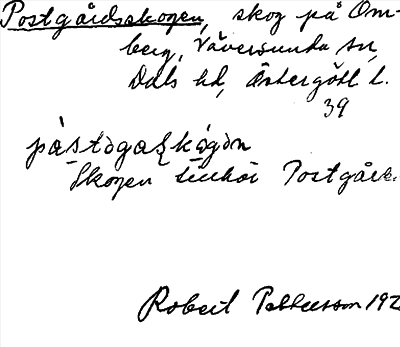 Postgårdsskogen, skog på Om-
berg, Väversunda sn,
Dals hd, Östergötl l.
39
Skogen tillhör Postgård.
Robert Pettersson 192